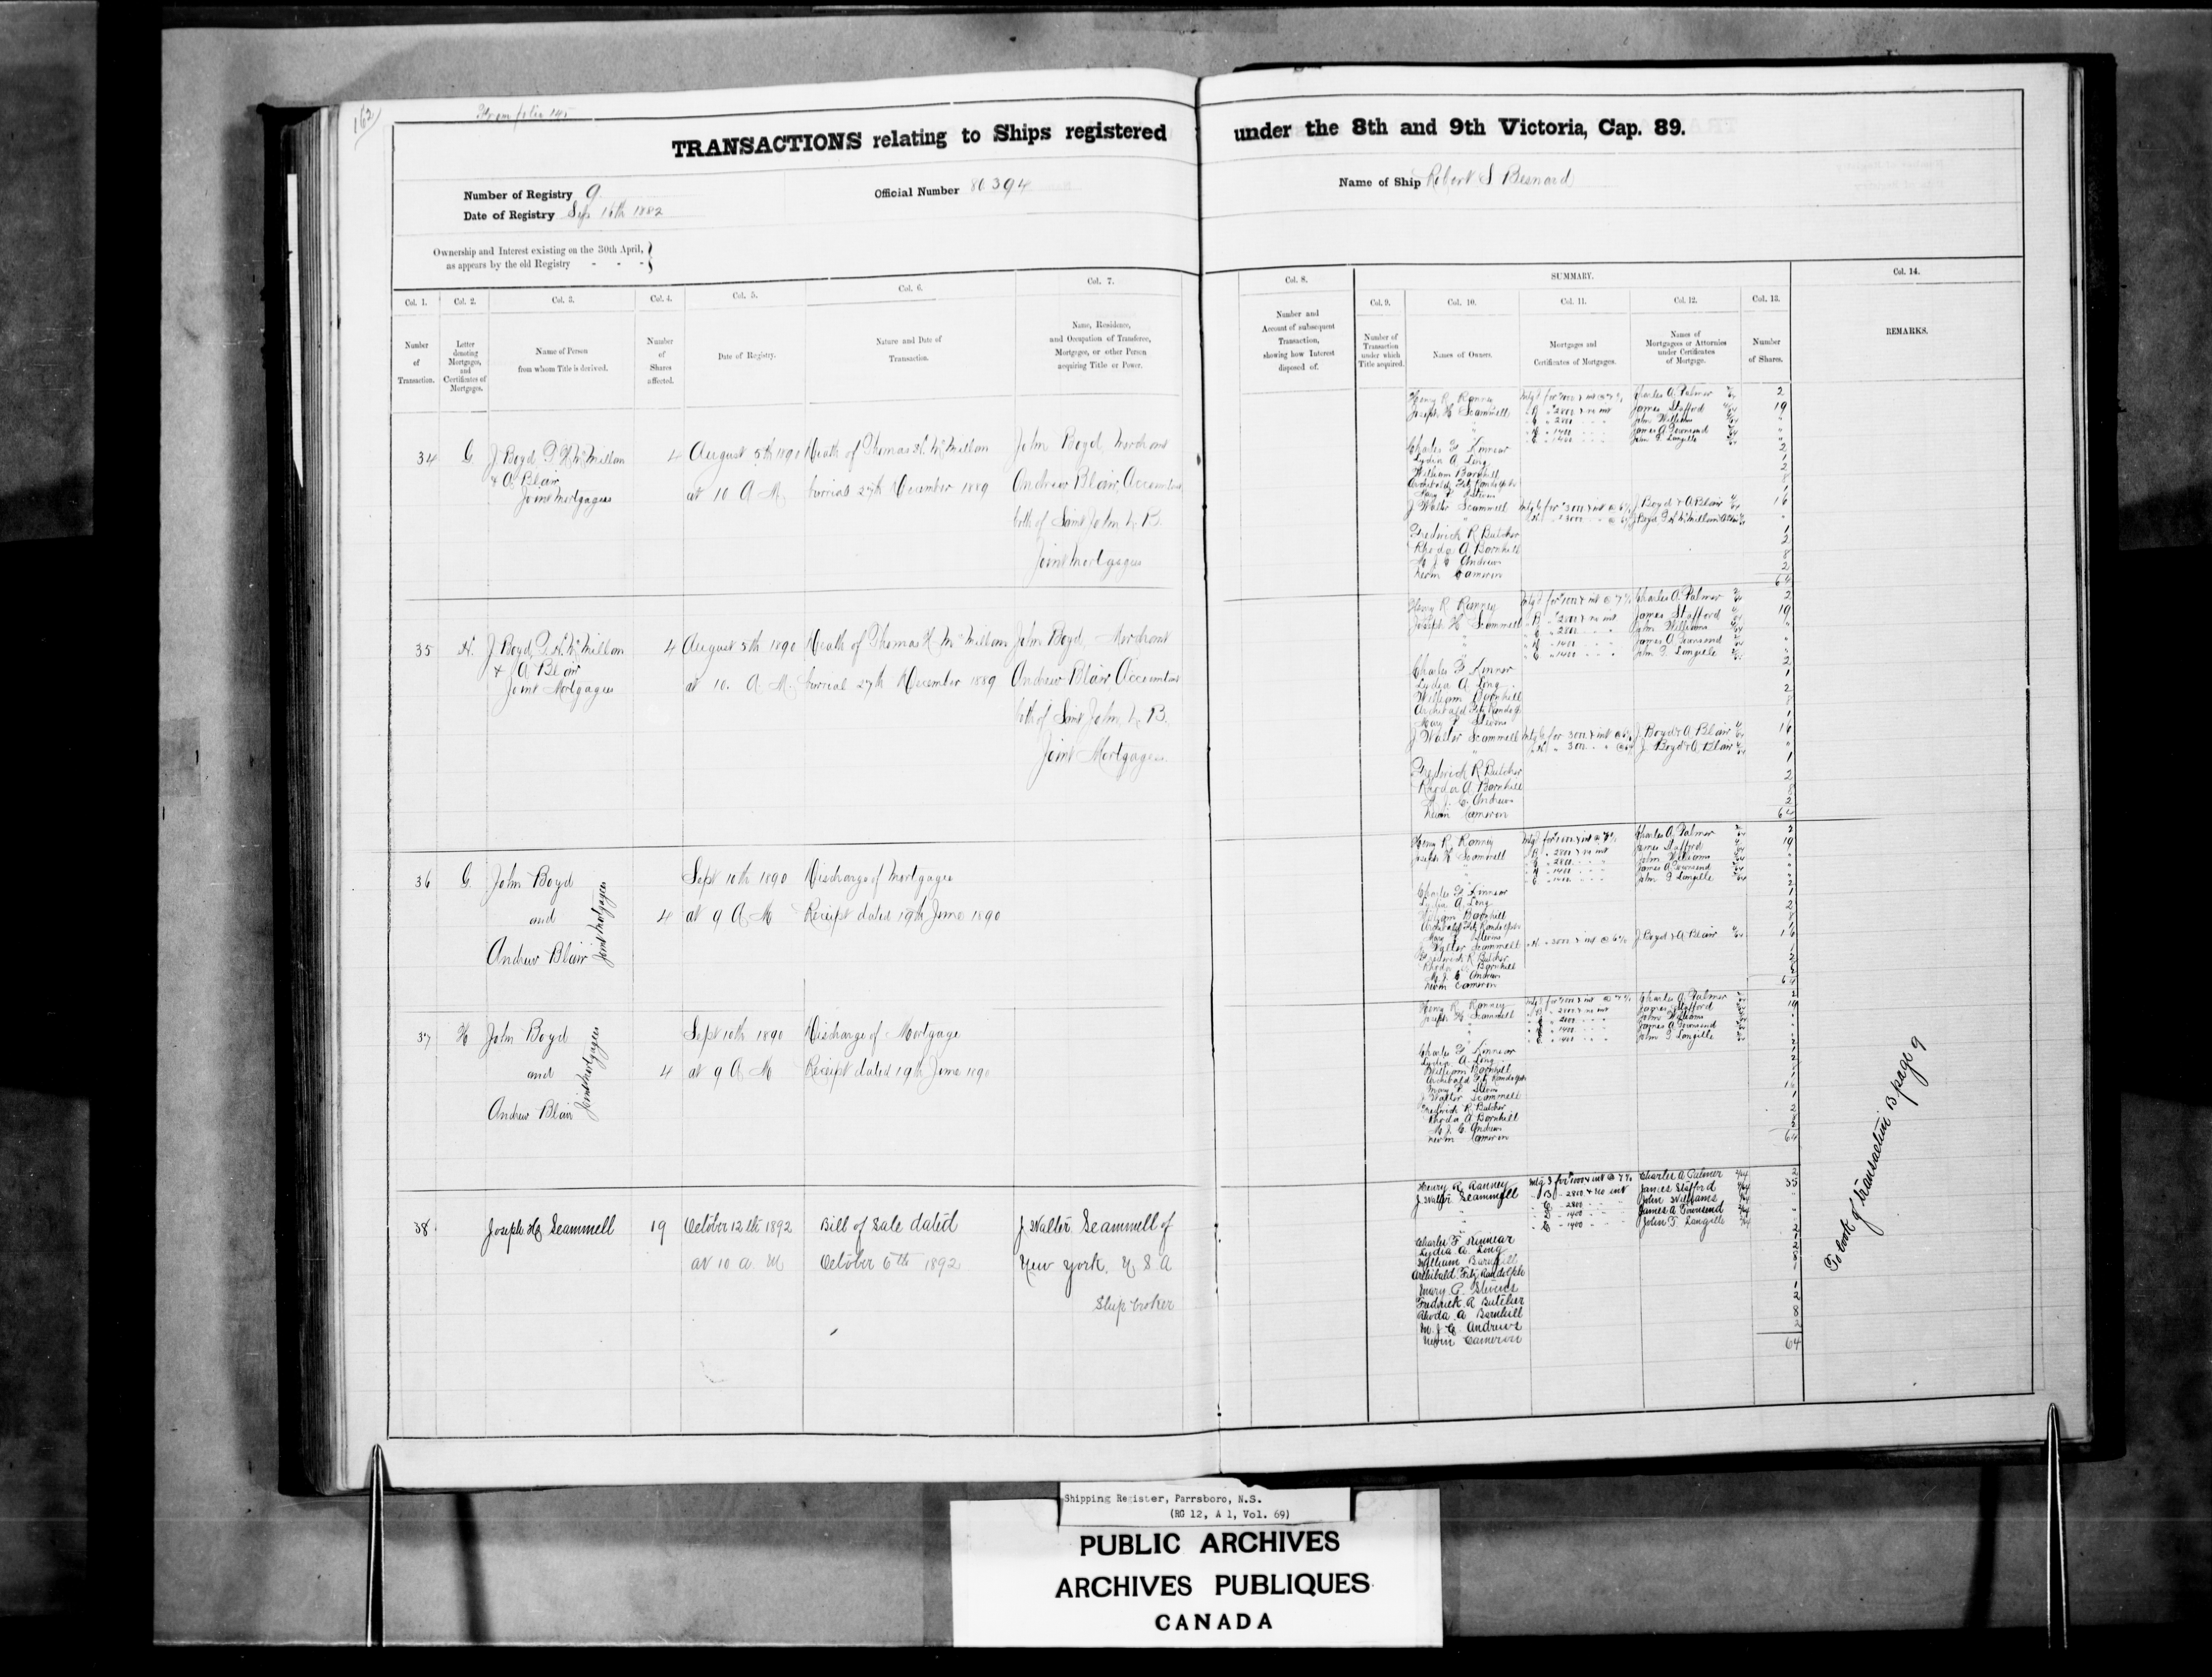 162
From folio 145
TRANSACTIONS relating to Ships registered under the 8th and 9th Victoria, Cap. 89.
Number of Registry 9
Official Number 80394
Name of Ship Robert S Besnard
Date of Registry Sept 16th 1882
Ownership and Interest existing on the 30th April,
as appears by the old Registry - - -
Col. 1.
Number
of
Transaction.
Col. 2.
Letter
denoting
Mortgages,
and
Certificates of
Mortgages.
Col. 3.
Name of Person
from whom Title is derived.
Col. 4.
Number
of
Shares
affected.
Col. 5.
Date of Registry.
Col. 6.
Nature and Date of
Transaction.
Col. 7.
Name, Residence,
and Occupation of Transferee,
Mortgagee, or other Person
acquiring Title or Power.
Col. 8.
Number and
Account of subsequent
Transaction,
showing how Interest
disposed of.
SUMMARY.
Col. 9.
Number of
Transaction
under which
Title acquired.
Col. 10.
Names of Owners.
Col. 11.
Mortgages and
Certificates of Mortgages.
Col. 12.
Names of
Mortgagees or Attornies
under Certificates
of Mortgage.
Col. 13.
Number
of Shares.
Col. 14.
REMARKS.
34 G J Boyd T H McMillan
& A Blair
Joint Mortgagees
4 August 5th 1890
at 10 A M
Death of Thomas H. McMillan
burial 27th December 1889
John Boyd, Merchant
Andrew Blair, Accountant
both of Saint John N. B.
Joint Mortgagees
Henry R Ranney
Charles A Palmer
2
Joseph H Scammell
James Stafford
19
John Williams
James A Townsend
John T Langille
Charles F Kinnear
2
Lydia A Long
1
William Barnhill
2
Archibald Fitz Randolph
8
Mary P Stevens
1
J Walter Scammell
J Boyd & A Blair
16
Fredrick R Butcher
1
Rhoda A Barnhill
2
M J C Andrews
8
Nevin Cameron
2
64
35 H. J Boyd, T. H. McMillan
& A Blair
Joint Mortgagees
4 August 5th 1890
at 10. A M.
Death of Thomas H McMillan
burial 27th December 1889
John Boyd, Merchant
Andrew Blair, Accountant
both of Saint John, N. B.
Joint Mortgagees
Henry R Ranney
Charles A Palmer
2
Joseph H Scammell
James Stafford
19
John Williams
James A Townsend
John T Langille
Charles F Kinnear
2
Lydia A Long
1
William Barnhill
2
Archibald Fitz Randolph
8
Mary P Stevens
1
J Walter Scammell
J. Boyd & A Blair
16
J. Boyd & A Blair
Fredrick R Butcher
1
Rhoda A Barnhill
2
M J C Andrews
8
Nevin Cameron
2
64
36 G. John Boyd
and
Andrew Blair
Joint Mortgagees
4
Sept 10th 1890
at 9 A M
Discharge of Mortgage
Receipt dated 19th June 1890
Henry R. Ranney
Charles A Palmer
2
Joseph H Scammell
James Stafford
19
John Williams
James A Townsend
John T Langille
Charles F Kinnear
Lydia A Long
William Barnhill
Archibald Fitz Randolph
Mary P Stevens
J Walter Scammell
J. Boyd & A Blair
16
Fredrick R Butcher
Rhoda A Barnhill
M. J C Andrews
Nevin Cameron
64
37 H John Boyd
and
Andrew Blair
Joint Mortgagees
4
Sept 10th 1890
at 9 A M
Discharge of Mortgage
Receipt dated 19th June 1890
Henry R. Ranney
Charles A Palmer
2
Joseph H Scammell
James Stafford
19
John Williams
James A Townsend
John T Langille
Charles F Kinnear
Lydia A Long
William Barnhill
Archibald Fitz Randolph
Mary P Stevens
J Walter Scammell
16
Fredrick R Butcher
Rhoda A Barnhill
M. J. C. Andrews
Nevin Cameron
64
38 Joseph H Scammell
19 October 12th 1892
at 10 a. M
Bill of Sale dated
October 6th 1892
J Walter Scammell of
New York, U S A
Ship broker
Henry R Ranney
Charles A Palmer
2
J. Walter Scammell
James Stafford
35
John Williams
James A Townsend
John T Langille
Charles F Kinnear
Lydia A. Long
William Barnhill
Archibald Fitz Randolph
Mary P. Stevens
Fredrick R Butcher
Rhoda A Barnhill
M. J C Andrews
Nevin Cameron
64
To book of transaction B page 9
Shipping Register, Parrsboro, N.S.
(RG 12, A 1, Vol. 69)
PUBLIC ARCHIVES
ARCHIVES PUBLIQUES
CANADA